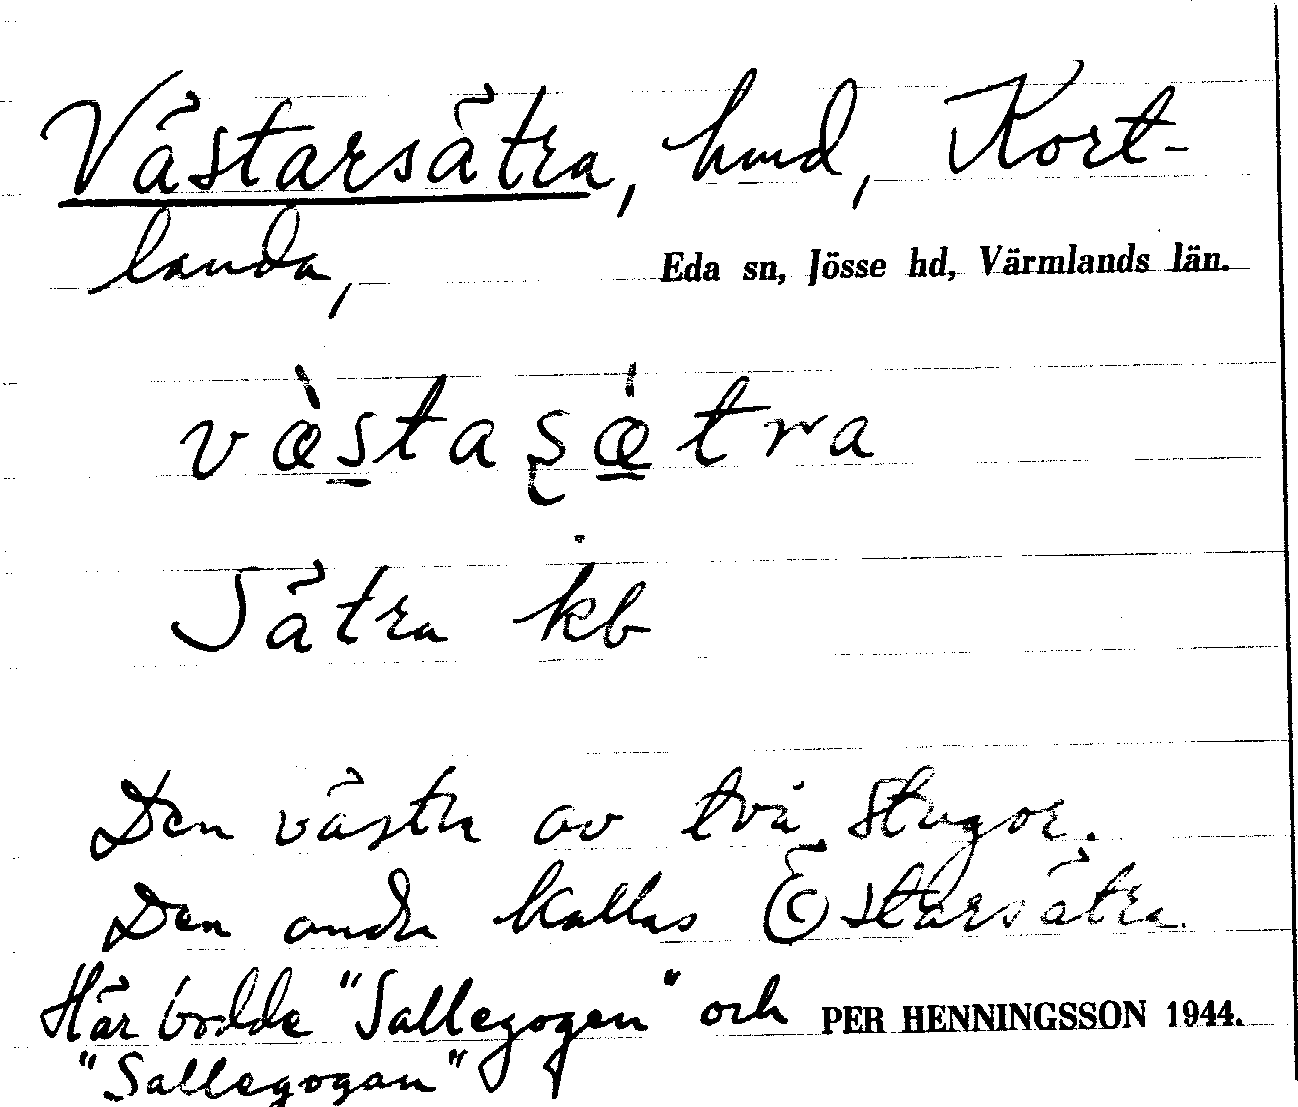 Västarsätra, hmd, Kort-
landa,
Eda sn, Jösse hd, Värmlands län.
væ̀stasǽtra
Sätra kb
Den västra av två stugor.
Den andra kallas Östarsätra.
Här bodde "Sallegogen" och
PER HENNINGSSON 1944.
"Sallegogan"